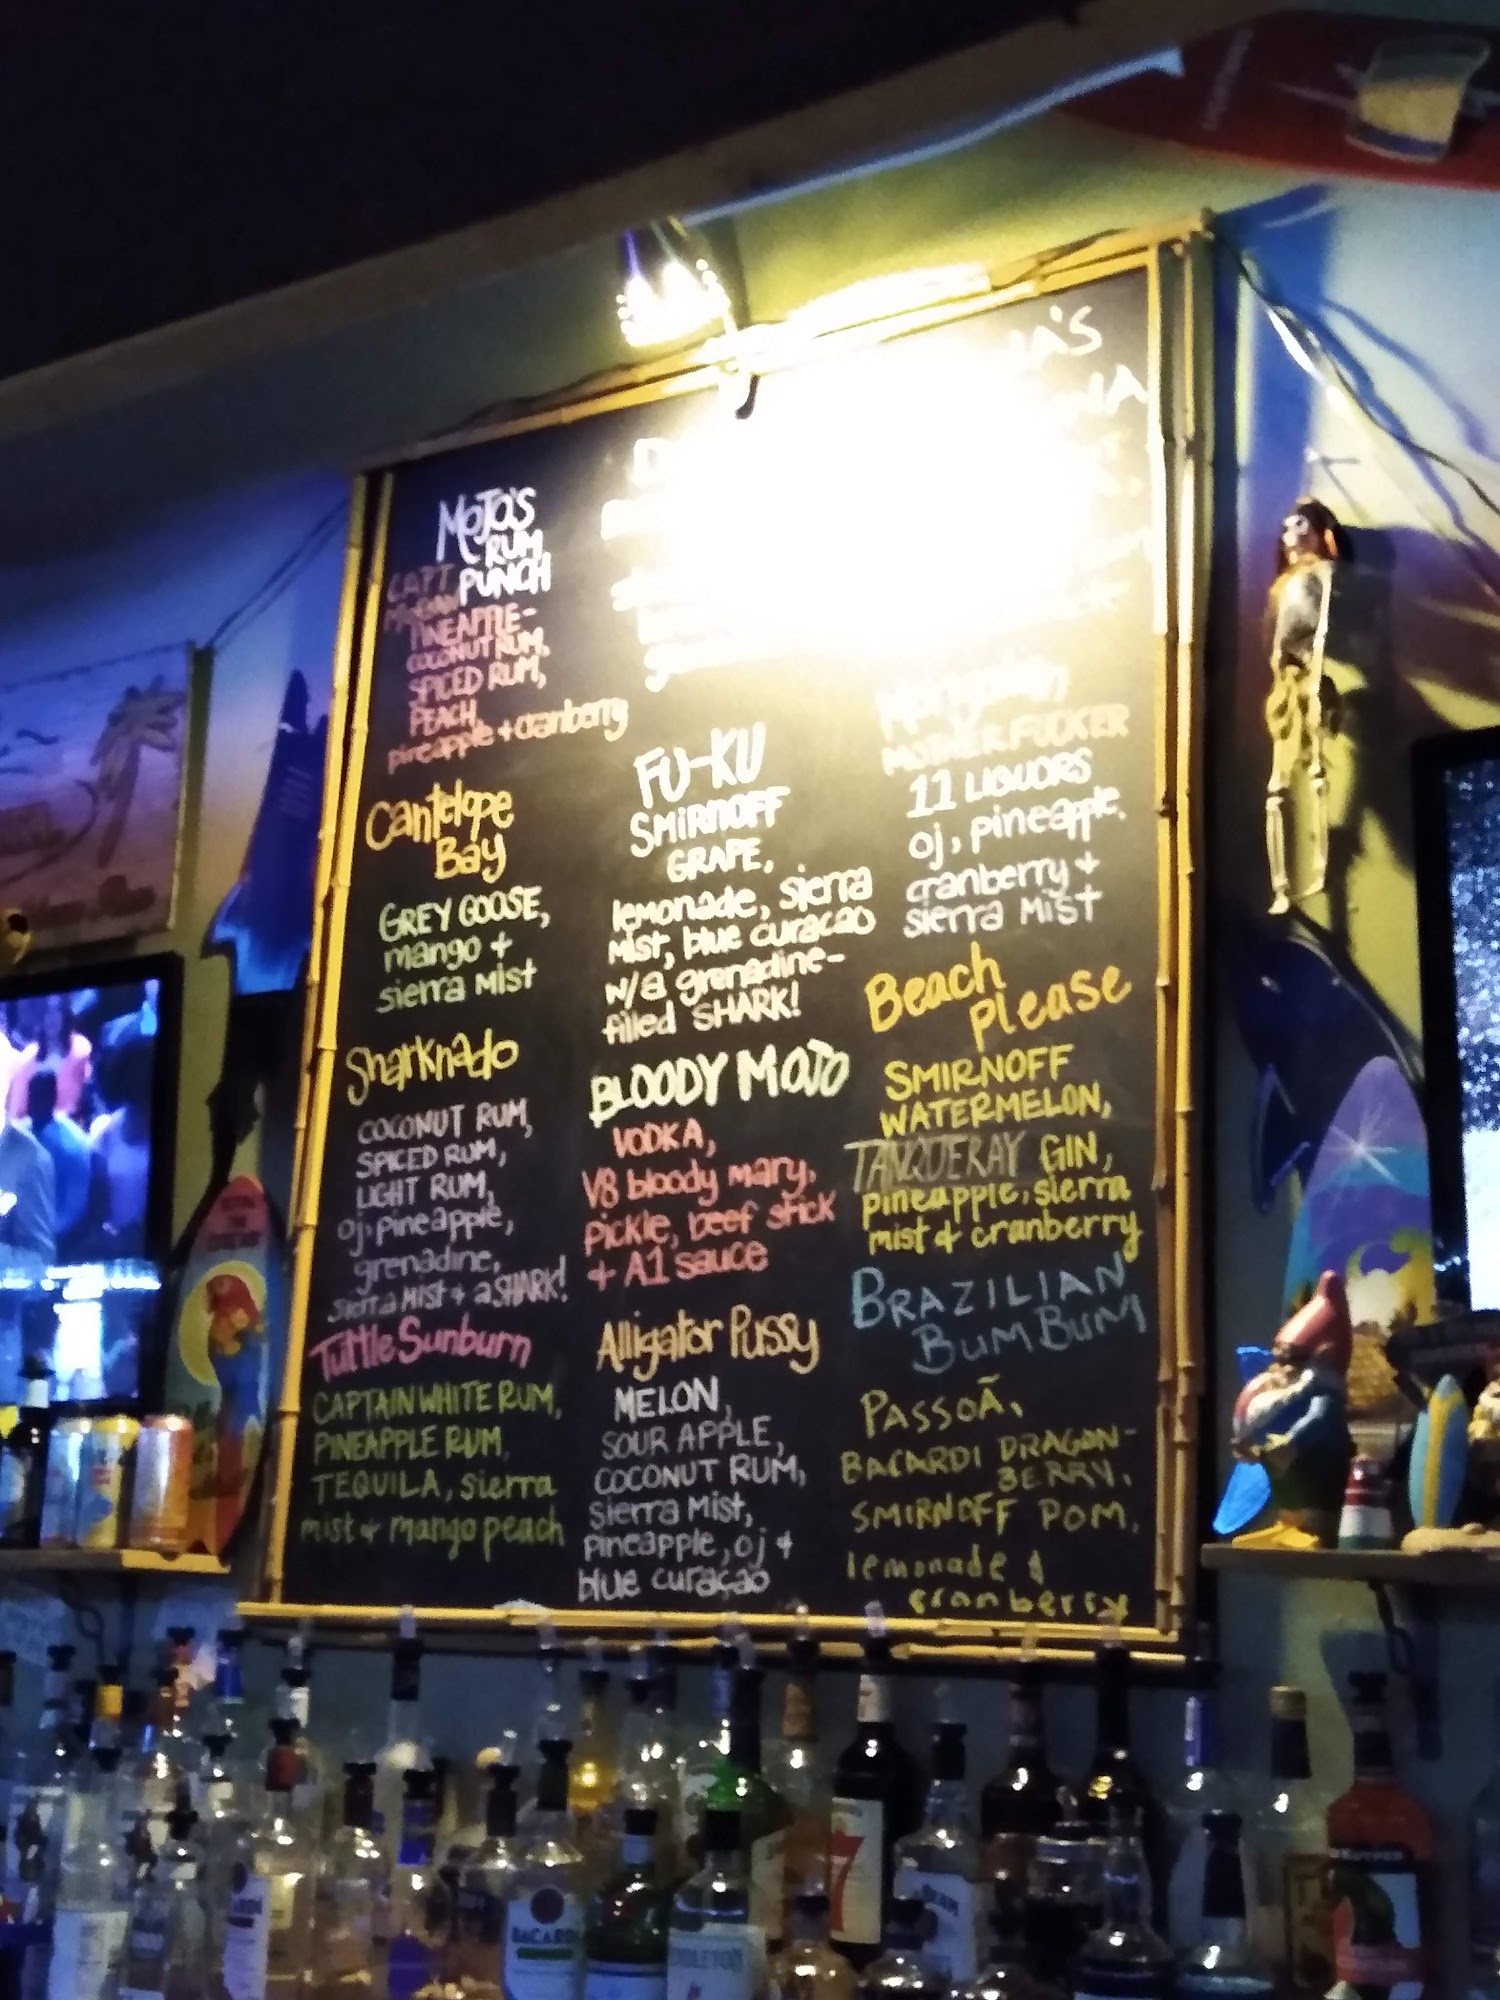 MOJO'S
RUM
PUNCH
CAPT.
MORGAN
PINEAPPLE-
COCONUT RUM,
SPICED RUM,
PEACH,
pineapple + cranberry
Cantelope
Bay
GREY GOOSE,
mango +
sierra Mist
Sharknado
COCONUT RUM,
SPICED RUM,
LIGHT RUM,
oj, pineapple,
grenadine,
sierra Mist + a SHARK!
Turtle Sunburn
CAPTAIN WHITE RUM,
PINEAPPLE RUM,
TEQUILA, sierra
mist + mango peach
FU-KU
SMIRNOFF
GRAPE,
lemonade, sierra
Mist, blue curacao
w/a grenadine-
filled SHARK!
BLOODY MOJO
VODKA,
V8 bloody mary,
pickle, beef stick
+ A1 sauce
Alligator Pussy
MELON,
SOUR APPLE,
COCONUT RUM,
sierra Mist,
pineapple, oj +
blue curaçao
MOTHERFUCKER
11 LIQUORS
oj, pineapple,
cranberry +
sierra Mist
Beach
please
SMIRNOFF
WATERMELON,
TANQUERAY GIN,
pineapple, sierra
mist + cranberry
BRAZILIAN
BUM BUM
PASSOÃ,
BACARDI DRAGON-
BERRY,
SMIRNOFF POM,
lemonade &
cranberry
BACARDI
7